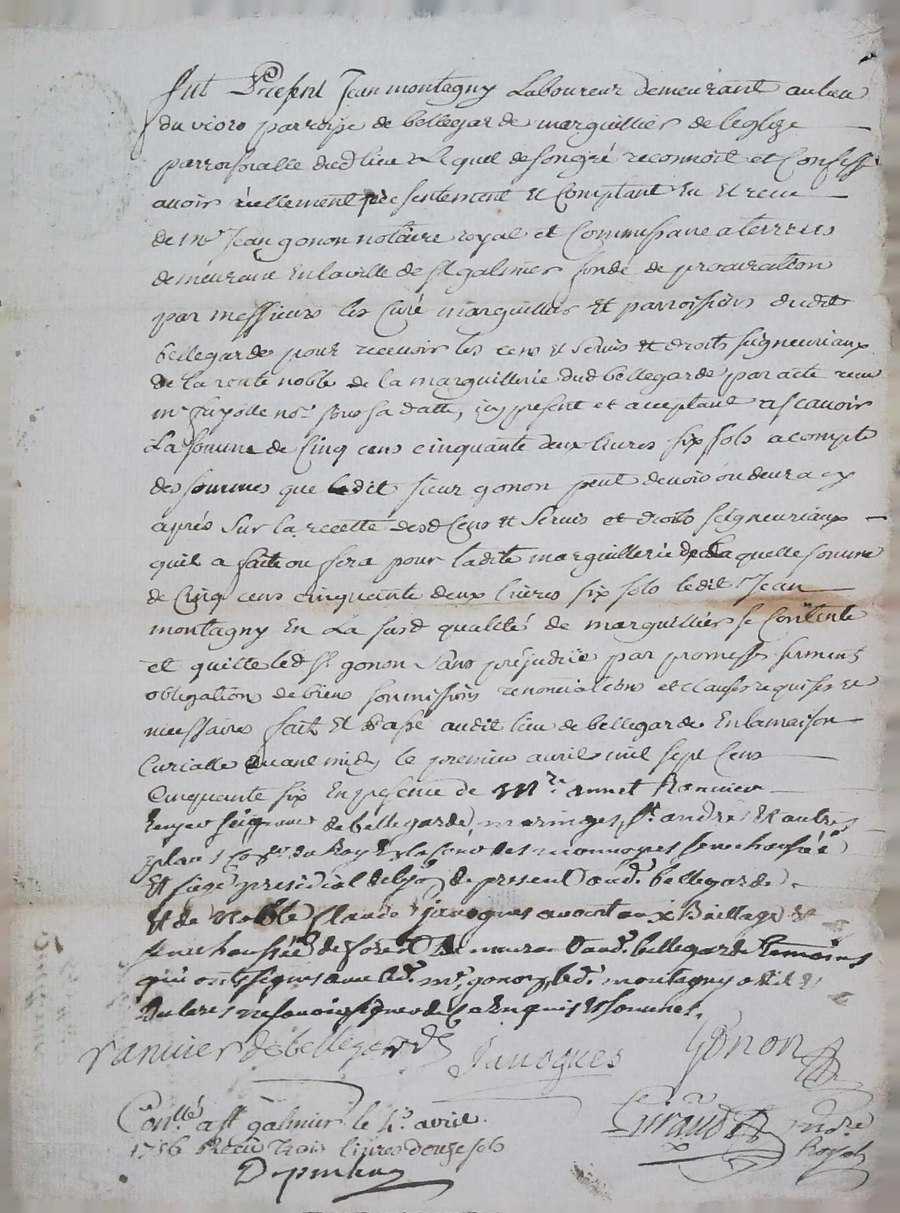 fut Présent Jean montagny Laboureur demeurant au lieu
du vioro parroisse de bellegarde marguillier de leglize
parroissialle dud lieu Lequel de son gré reconnoit et Confesse
avoir réellement présentement et Comptant Eu et receu
de mr Jean gonon notaire royal et Commissaire a terriers
demeurant En la ville de st galmier fondé de procuration
par messieurs les Curé marguilliers et parroissiens dudit
bellegarde pour recevoir les cens et servis et droits seigneuriaux
de la rente noble de la marguillerie dud bellegarde par acte receu
me fayolle nore sous sa datte, icy present et acceptant ascavoir
La somme de Cinq cens cinquante deux livres six sols acompte
des sommes que ledit sieur gonon peut devoir ou devra cy
aprés sur la recette desd Cens et Servis et droits seigneuriaux
quil a faite ou fera pour ladite marguillerie de laquelle somme
de Cinq cens cinquante deux livres six sols ledit Jean
montagny En La susd qualité de marguillier se Contente
et quitte led sr gonon sans préjudice par promesse serment
obligation de biens soumissions renonciations et clauses requises et
necessaires fait et Passé audit lieu de bellegarde En la maison
Curialle avant midy le premier avril mil sept Cens
Cinquante six En presence de Mre annet Ranvier
seigneur de bellegarde, maringes, st andré Et autres
places Coner du Roy En la Cour des monnoyes senechaussée
Et siege presidial de lyon de present aud. bellegarde
et de Noble Claude Janogues avocat aux Baillage et
senechaussée de forest demeurant aud. bellegarde temoins
qui ont signés avec led. mr gonon, led. montagny a dit
ne scavoir signer de ce Enquis et sommé.
ranvier de bellegarde Janogues Gonon
Conllé a st galmier le 4e avril
1756 Reçu trois livres douze sols
Giraud nore
Royal